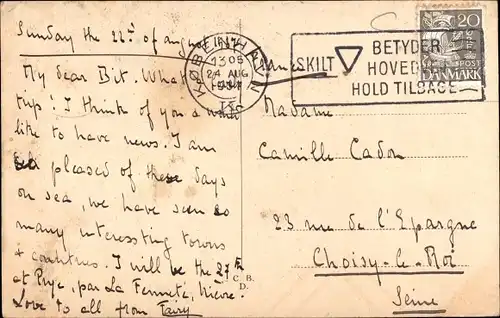 Sunday the 22d of august
My dear Bit. What
trip! I think of you & would
like to have news. I am
so pleased of these days
on sea, we have seen so
many interessting towns
& countries. I will be the 27th
at Prye, par La Fermeté, Nièvre.
Love to all from Fairy
KØBENHAVN
1305
24 AUG
SKILT
BETYDER
HOVED
HOLD TILBAGE
20
POST
DANMARK
Madame
Camille Cadon
23 rue de l'Epargne
Choisy-le-Roi
Seine
C. B.
D.